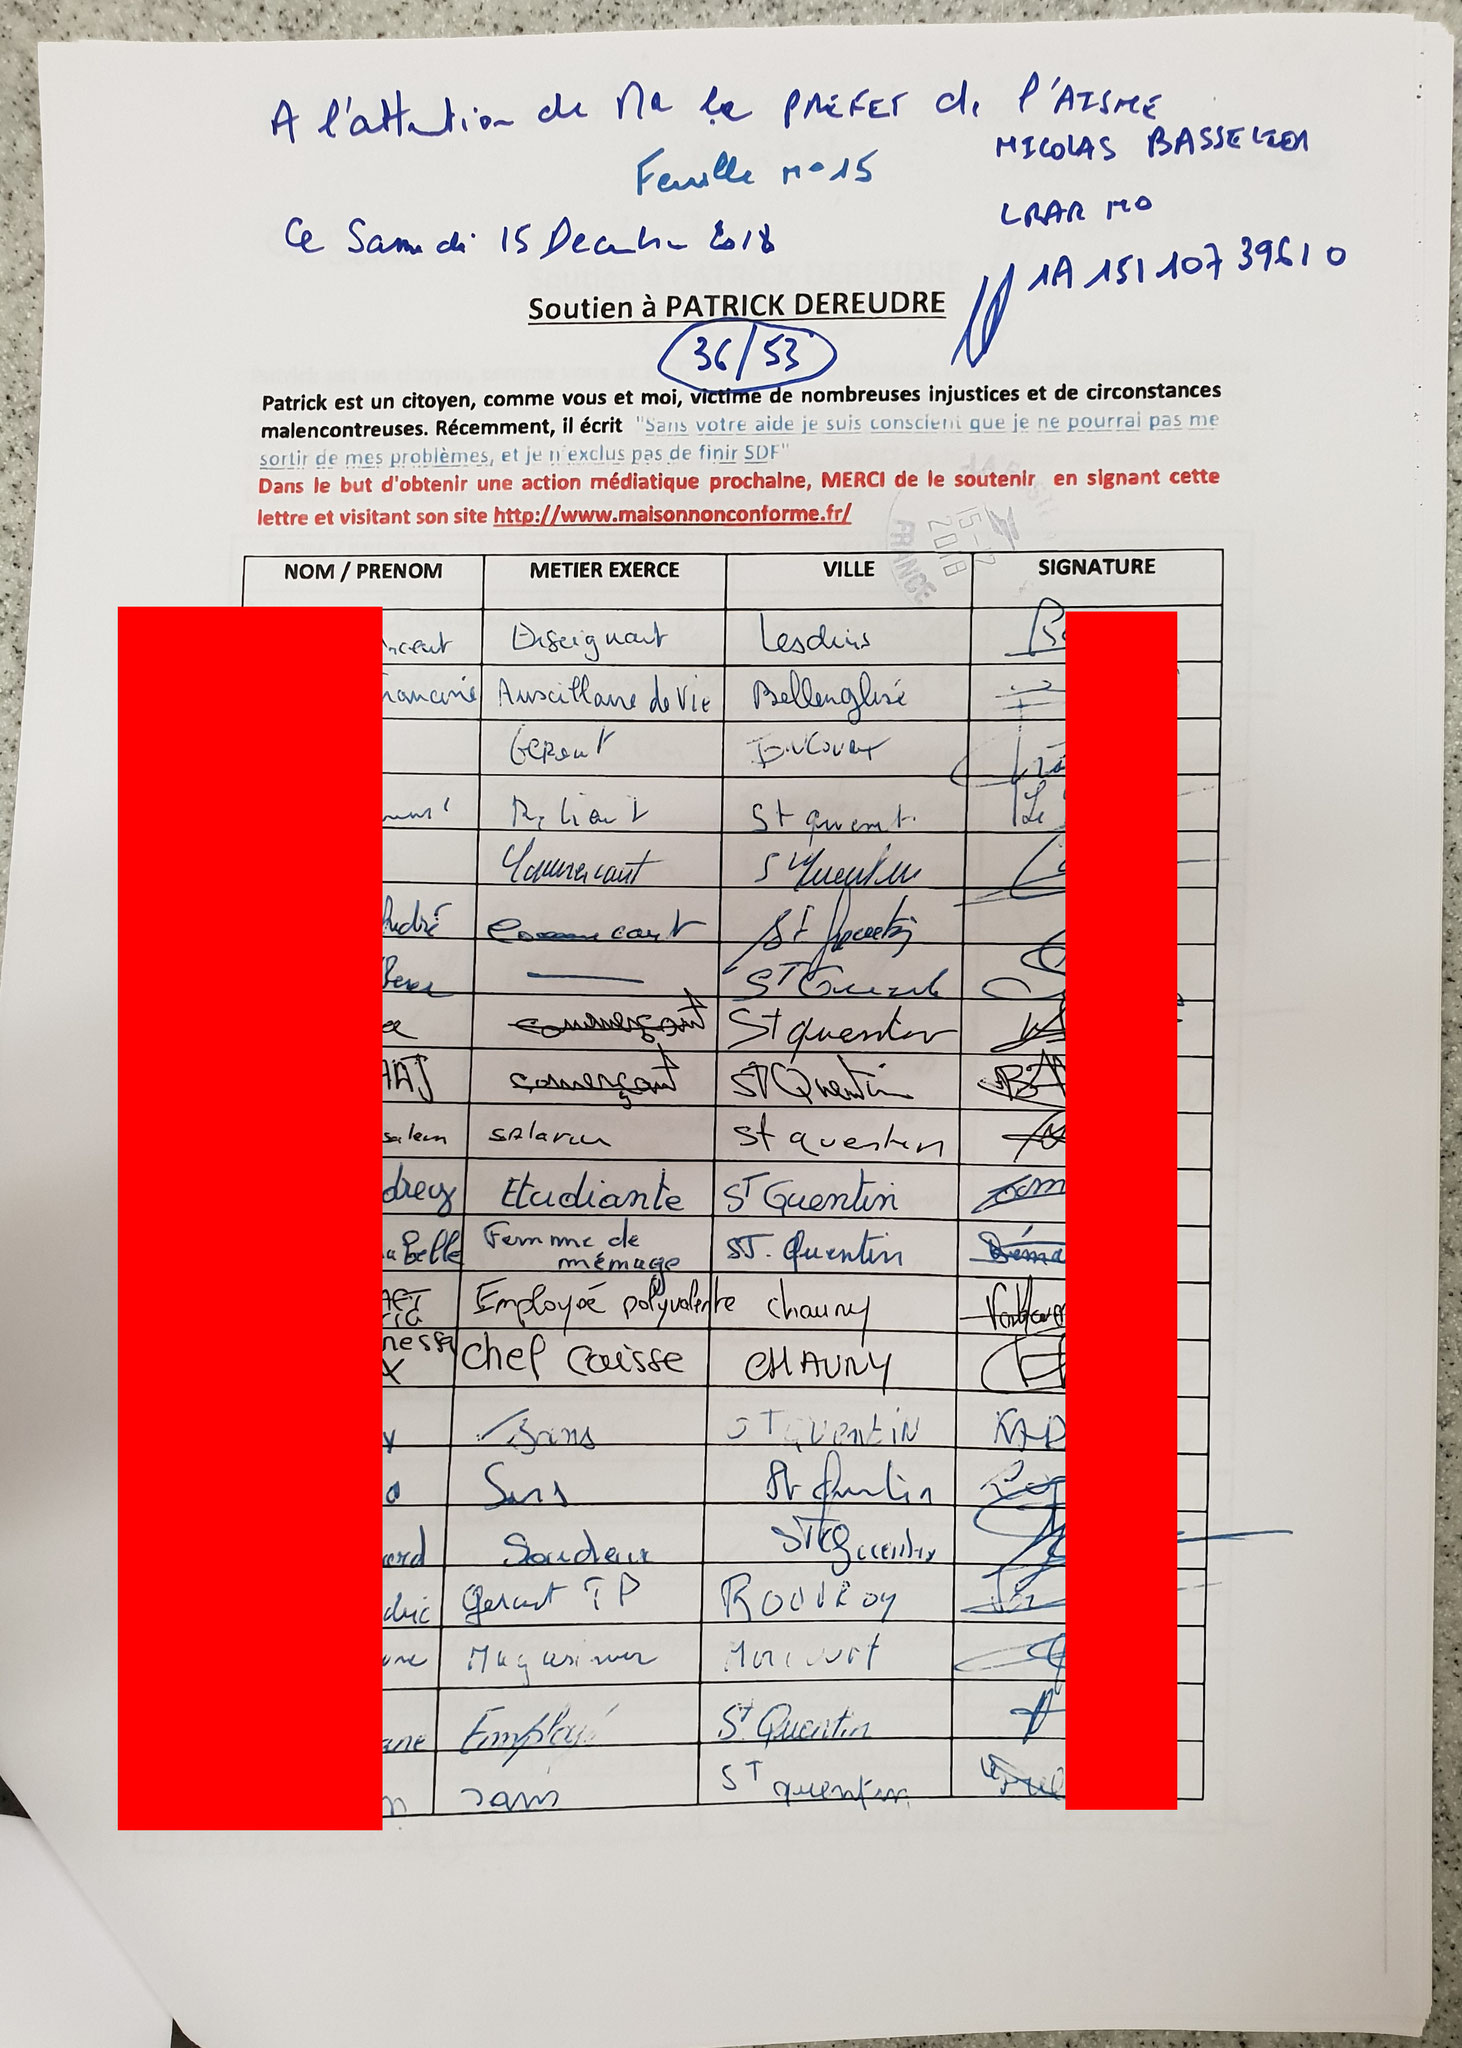 A l'attention de Mr le PREFET de l'AISNE
NICOLAS BASSELIER
Feuille no 15
LRAR NO
Ce Samedi 15 Decembre 2018
1A 151 107 3961 0
Soutien à PATRICK DEREUDRE
36/53
Patrick est un citoyen, comme vous et moi, victime de nombreuses injustices et de circonstances
malencontreuses. Récemment, il écrit "Sans votre aide je suis conscient que je ne pourrai pas me
sortir de mes problèmes, et je n'exclus pas de finir SDF"
Dans le but d'obtenir une action médiatique prochaine, MERCI de le soutenir en signant cette
lettre et visitant son site http://www.maisonnonconforme.fr/
15-12
2018
FRANCE
NOM / PRENOM METIER EXERCE VILLE SIGNATURE
Enseignant Lesdins
Auxcillaire de Vie Bellenglise
Gérant
St quent.
Commercant St Quentin
André Commercant St Quentin
— ST Quentin
commerçant St quentin
HAJ comerçant St Quentin
salem salarier St quentin
Etudiante ST Quentin
Femme de
ménage ST. Quentin
Employée polyvalente chauny
chef caisse CHAUNY
Sans ST QUENTIN
Sans St Quentin
Soudeur ST Quentin
Gerant TP ROUVROY
Magasinier Harcourt
Employé St Quentin
sans ST quentin